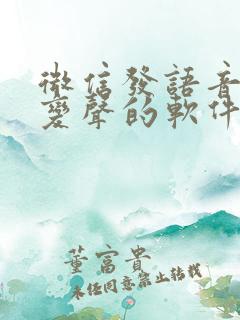 微信發語音
變聲的軟件
董富貴
未经同意禁止转载